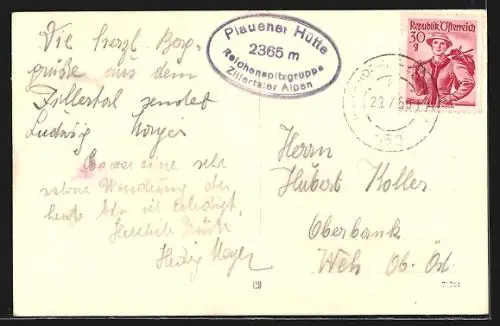 Die herzl. Berg-
grüße aus dem
Zillertal sendet
Ludwig
war eine sehr
schöne Wanderung die
heute
Herzliche Grüße
Hedwig
Plauener Hütte
2365 m
Reichenspitzgruppe
Zillertaler Alpen
Republik Österreich
30
g
Herrn
Hubert Koller
Oberbank
Wels Ob. Öst.